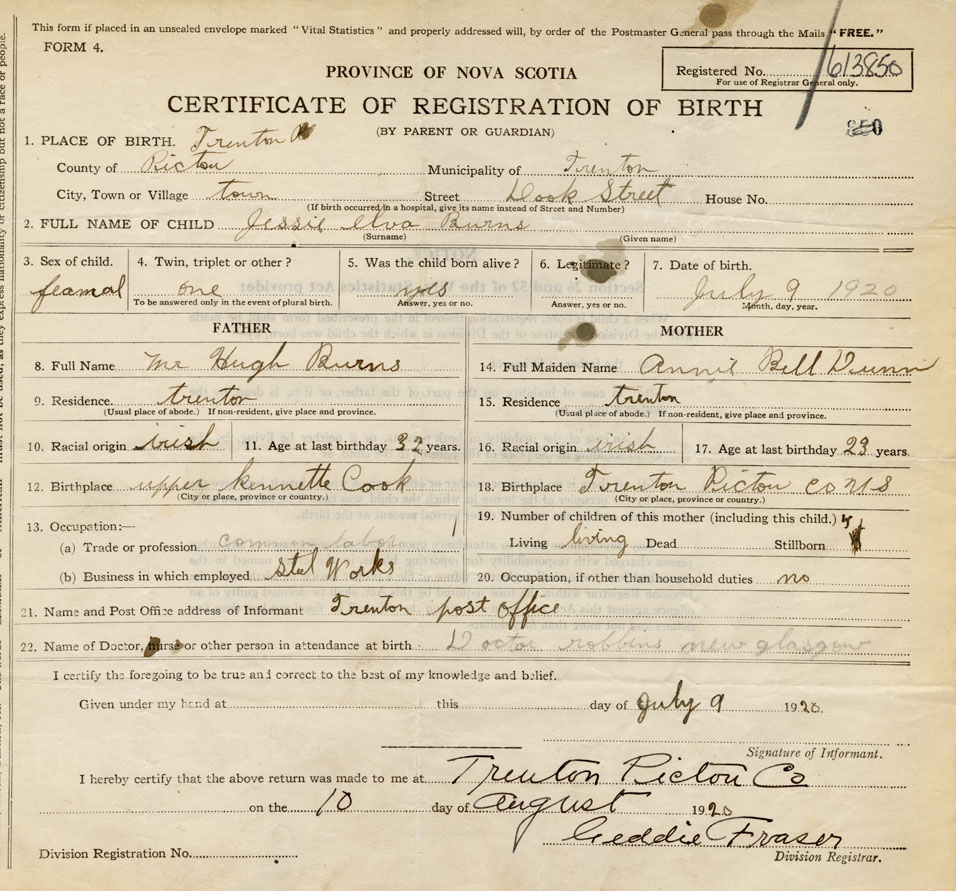 This form if placed in an unsealed envelope marked "Vital Statistics" and properly addressed will, by order of the Postmaster General pass through the Mails "FREE."
FORM 4.
Registered No. 613850
For use of Registrar General only.
PROVINCE OF NOVA SCOTIA
CERTIFICATE OF REGISTRATION OF BIRTH
(BY PARENT OR GUARDIAN)
850
1. PLACE OF BIRTH. Trenton
County of Pictou Municipality of Trenton
City, Town or Village town Street Dook Street House No.
(If birth occurred in a hospital, give its name instead of Street and Number)
2. FULL NAME OF CHILD Jessie Elva Burns
(Surname) (Given name)
3. Sex of child. 4. Twin, triplet or other? 5. Was the child born alive? 6. Legitimate? 7. Date of birth.
feamal one yes July 9 1920
To be answered only in the event of plural birth. Answer, yes or no. Answer, yes or no. Month, day, year.
FATHER MOTHER
8. Full Name Mr Hugh Burns 14. Full Maiden Name Annie Bell Dunn
9. Residence. trenton 15. Residence trenton
(Usual place of abode.) If non-resident, give place and province. (Usual place of abode.) If non-resident, give place and province.
10. Racial origin irish 11. Age at last birthday 32 years. 16. Racial origin irish 17. Age at last birthday 23 years.
12. Birthplace upper kennette Cook 18. Birthplace Trenton Pictou co NS
(City or place, province or country.) (City or place, province or country.)
13. Occupation:— 19. Number of children of this mother (including this child.)
(a) Trade or profession common labor Living living Dead Stillborn
(b) Business in which employed Stel Works 20. Occupation, if other than household duties no
21. Name and Post Office address of Informant Trenton post office
22. Name of Doctor, nurse or other person in attendance at birth Doctor robbins new glasgow
I certify the foregoing to be true and correct to the best of my knowledge and belief.
Given under my hand at this day of July 9 1920.
Signature of Informant.
I hereby certify that the above return was made to me at Trenton Pictou Co
on the 10 day of August 1920
Geddie Fraser
Division Registration No. Division Registrar.